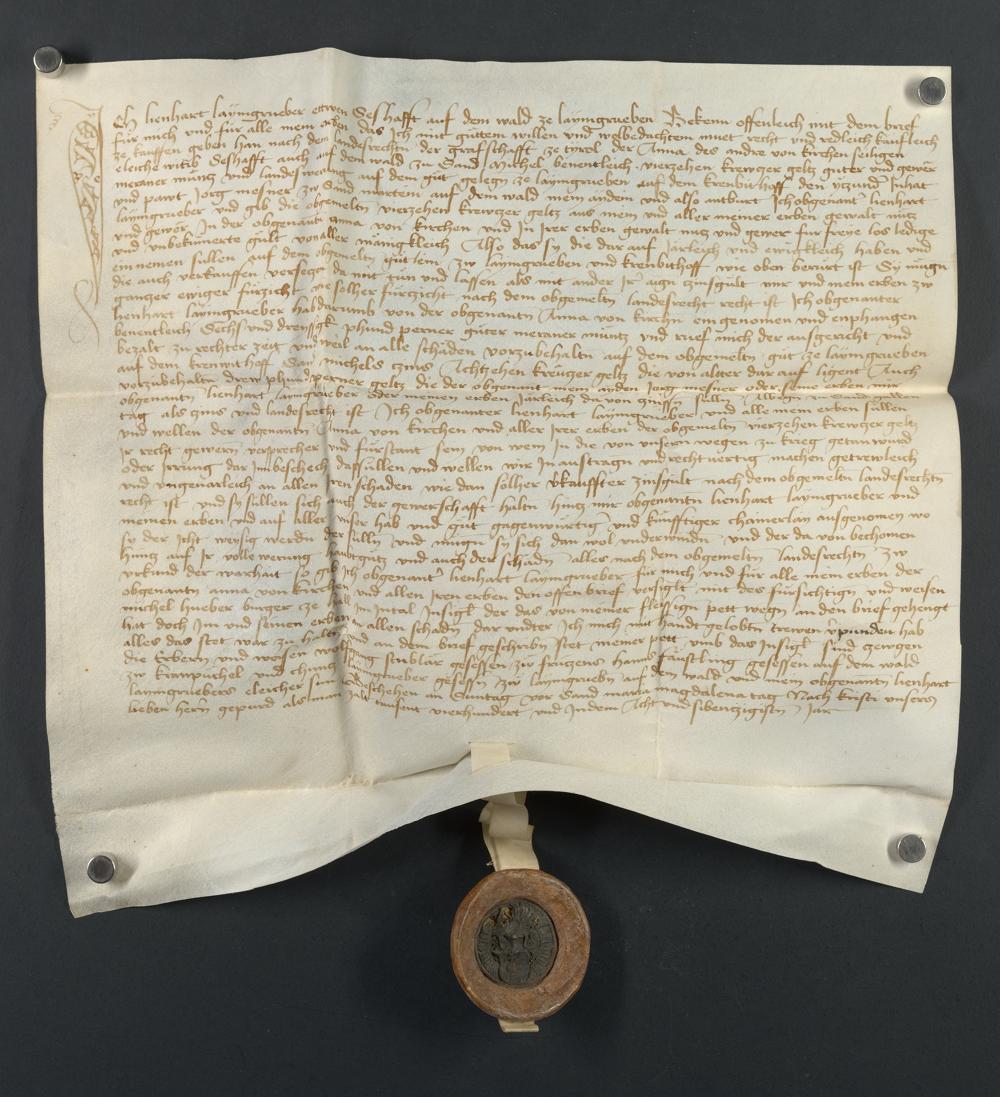 Ich lienhart laymgrueber etwen Seshafft auf dem wald ze laymgrueben Bekenn offenleich mit dem brief
für mich und für alle mein erben das Ich mit guttem willen und wolbedachtem muet recht und redleich kaufleich
ze kauffen geben han nach dem landesrechtn der graf schafft ze tirol der Anna des andre von kirchen seiligen
eleiche witib Seshafft auch auf dem wald zu Sand michel benentleich vierzehen krewczer geltz guter und gewer
meraner müntz und landeswerung auf dem güt gelegn ze laymgrueben auf dem krenbithoff den yczund Inhat
und pawt Jorg mesner zw Sand martein auf dem wald mein anden und also antburt Ich obgenant lienhart
laymgrueber und gib die obgemeltn vierzehen krewczer geltz aus mein und aller meiner erben gewalt nutz
und gewer In der obgenantn anna von kirchen und In Irer erben gewalt nutz und gewer fur freye los ledige
und unbekumerte gult von aller mainigkleich Also das sy die dar auf Järleich und ewigkleich haben und
ein nemen sullen auf dem obgemeltn güt lem zw laymgrueben und krenbithoff wie oben berurt ist Sy mugn
die auch verkauffen versetzn da mit tun und lassen als mit ander Ir aign zinsgült mir und mein erben zw
ganczer ewiger fürzicht wie solher fürzicht nach dem obgemeltn landesrecht recht ist Ich obgenanter
lienhart laymgrueber hab darumb von der obgenantn Anna von kirchn ein genomen und enphangen
benentleich Sechs und dreyssigk phund perner güter meraner müntz und ruef mich der ausgericht und
bezalt zu rechter zeit und weil an alle schäden vorzubehaltn auf dem obgemeltn güt ze laymgrueben
auf dem krenwithoff Sand michels czins Achtzehen kreuczer geltz die von altter dar auf ligent Auch
vorzubehaltn drew phund perner geltz die der obgenant mein anden Jorg mesner oder seine erben mir
obgenantn lienhart laymgrueber oder meinen erben Järleich da von zinssen sullen
tag als zins und landesrecht ist Ich obgenanter lienhart laymgrueber und alle mein erben süllen
und wellen der obgenantn Anna von kirchen und aller Irer erben der obgemeltn vierzehen krewczer geltz
Ir recht gewern versprecher und fürstant sein von wem In die von unseren wegen zu krieg getan wurd
oder Irrung dar Inn beschech das süllen und wellen wir In austragn und rechtvertig machen getrewleich
und ungevarleich an allen Iren schaden wie dan sölher verkauffter zinsgült nach dem obgemeltn landesrechtn
recht ist und sy süllen sich auch der gewerschafft haltn hintz mir obgenantn lienhart laymgrueber und
meinen erben und auf aller unser hab und güt gagenwürtig und künfftiger chainerlay ausgenomen wo
sy der Icht weysig werdn der sulln und mugn sy sich dan wol underwindn und der da von bechomen
hintz auf Ir volle werung hautgüt und auch der schadn alles nach dem obgemeltn landesrechtn zw
urkund der warhait So gib Ich obgenant lienhart laymgrueber für mich und für alle mein erben der
obgenantn anna von kirchen und allen Iren erben den offen brief versiglt mit des fürsichtign und weisen
michel hueber burger ze hall Im Intal Insigl der das von meiner fleissign pett wegn an den brief gehengt
hat doch Im und seinen erben an allen schadn dar undter Ich mich mit handt gelobtn trewen verpunden hab
alles das stet war zu halten und an dem brief geschribn stet meiner pett umb das Insigl sind gewesen
die Erbern und weisen wolfgang stublär gesessen zw frugens hanns fäustling gesessen auf dem wald
zw krawpuchel und laymgrueber gesessn zw laymgruebn auf dem wald und mein obgenantn lienhart
laymgruebers eleicher sun Beschehen an Suntag vor Sand maria magdalena tag Nach kristi unsers
lieben herrn gepurd als man zalt tausent vierhundert und Indem Acht und sibenczigistn Jar